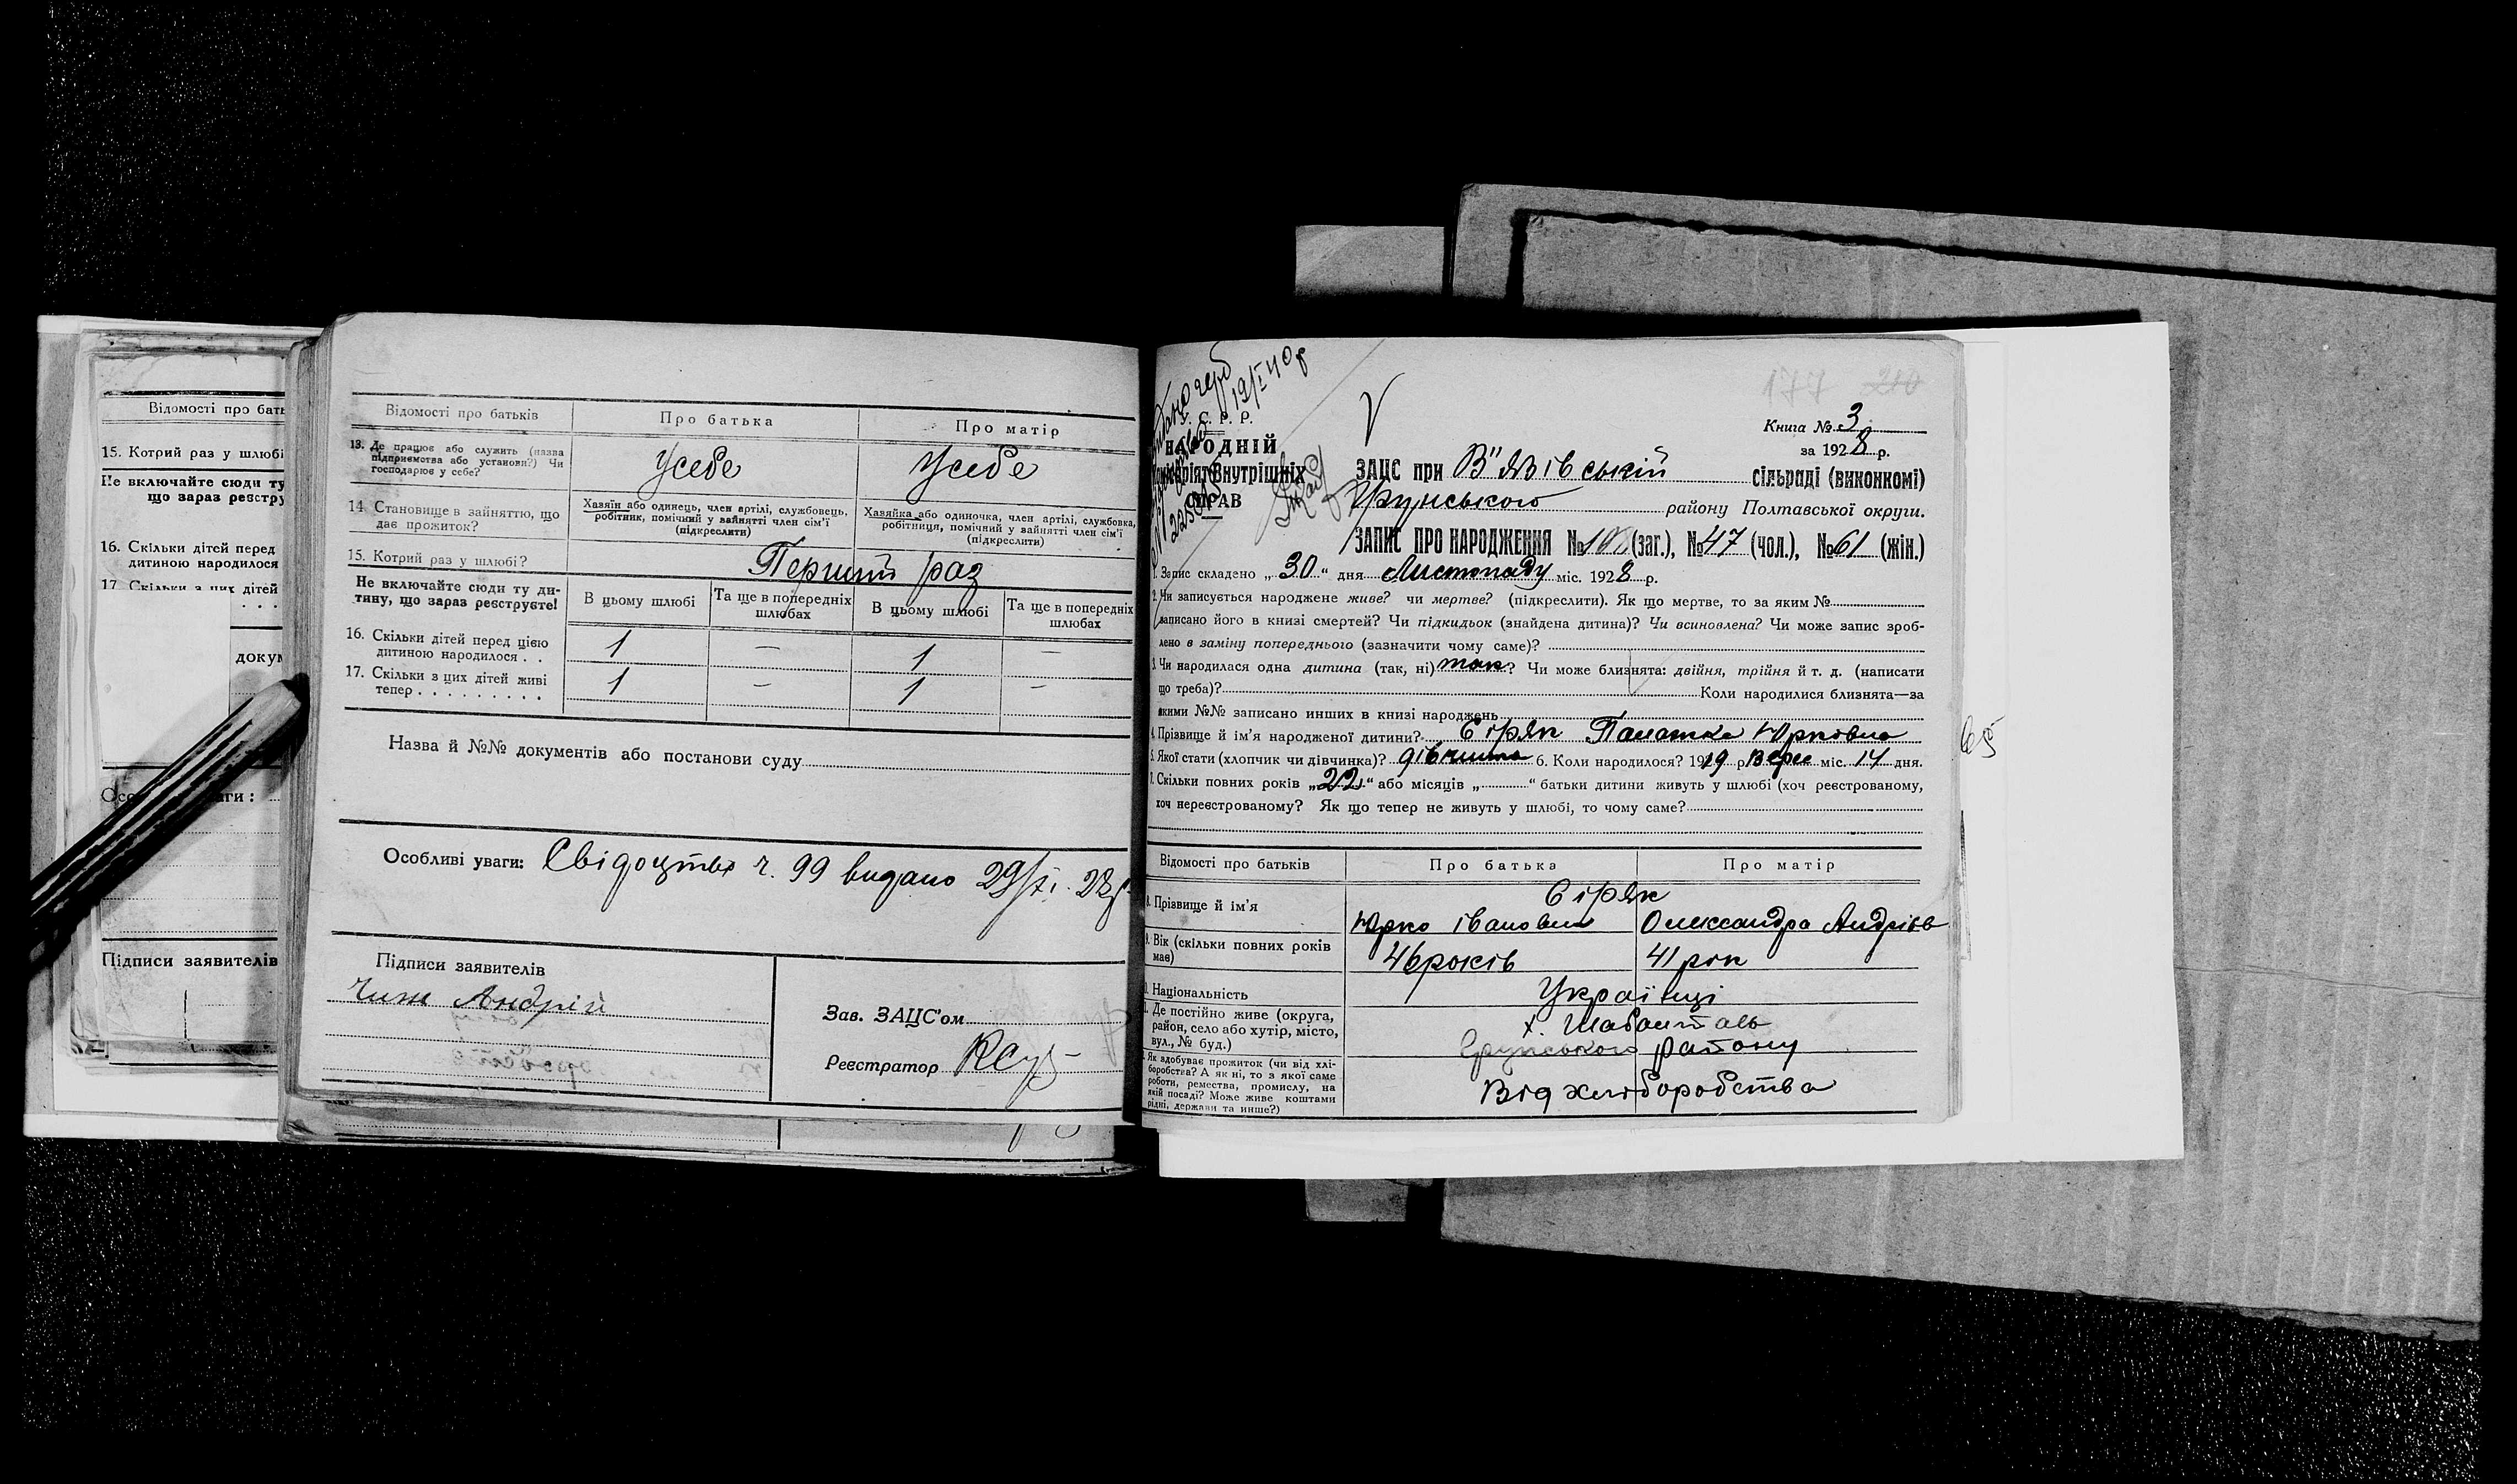 Відомості про бать
15. Котрий раз у шлюбі
Не включайте сюди ту
що зараз реєстру
16. Скільки дітей перед
дитиною народилося
17. Скільки з цих дітей
докум
Підписи заявителів
Відомості про батьків
Про батька
Про матір
13. Де працює або служить (назва
підприємства або установи?) Чи
господарює у себе?
Усебе
Усебе
14. Становище в зайняттю, що
дає прожиток?
Хазяїн або одинець, член артілі, службовець,
робітник, помічний у зайнятті член сім'ї
(підкреслити)
Хазяйка або одиночка, член артілі, службовка,
робітниця, помічний у зайнятті член сім'ї
(підкреслити)
15. Котрий раз у шлюбі?
Перший раз
Не включайте сюди ту ди-
тину, що зараз реєструєте!
В цьому шлюбі
Та ще в попередніх
шлюбах
В цьому шлюбі
Та ще в попередніх
шлюбах
16. Скільки дітей перед цією
дитиною народилося . .
1 — 1 —
17. Скільки з цих дітей живі
тепер . . . . . . . . .
1 — 1 —
Назва й №№ документів або постанови суду
Особливі уваги: Свідоцтво ч. 99 видано 29/XI. 28р
Підписи заявителів
Чиж Андрій
Зав. ЗАЦС'ом
Реєстратор
19/I 40р
У. С. Р. Р.
НАРОДНІЙ
Внутрішніх
СПРАВ
177 210
Книга № 3
за 1928 р.
ЗАЦС при В"язівській сільраді (виконкомі)
Грунського району Полтавської округи.
ЗАПИС ПРО НАРОДЖЕННЯ № (заг.), № 47 (чол.), № 61 (жін.)
1. Запис складено „30“ дня Листопаду міс. 1928 р.
2. Чи записується народжене живе? чи мертве? (підкреслити). Як що мертве, то за яким №
записано його в книзі смертей? Чи підкидьок (знайдена дитина)? Чи всиновлена? Чи може запис зроб-
лено в заміну попереднього (зазначити чому саме)?
3. Чи народилася одна дитина (так, ні) так? Чи може близнята: двійня, трійня й т. д. (написати
що треба)? Коли народилися близнята—за
якими №№ записано инших в книзі народжень
4. Прізвище й ім'я народженої дитини? Сіряк Палажка Юрковна
5. Якої стати (хлопчик чи дівчинка)? дівчина 6. Коли народилося? 1919 р Верес міс. 14 дня.
7. Скільки повних років „22“ або місяців „ “ батьки дитини живуть у шлюбі (хоч реєстрованому,
хоч нереєстрованому? Як що тепер не живуть у шлюбі, то чому саме?
Відомості про батьків
Про батька
Про матір
8. Прізвище й ім'я
Сіряк
Юрко Іванович
Олександра Андріїв
9. Вік (скільки повних років
має)
46 років
41 рік
Національність
Українці
Де постійно живе (округа,
район, село або хутір, місто,
вул., № буд.)
х.
Грунського району
Як здобуває прожиток (чи від хлі-
боробства? А як ні, то з якої саме
роботи, ремества, промислу, на
якій посаді? Може живе коштами
рідні, держави та инше?)
Від хліборобства